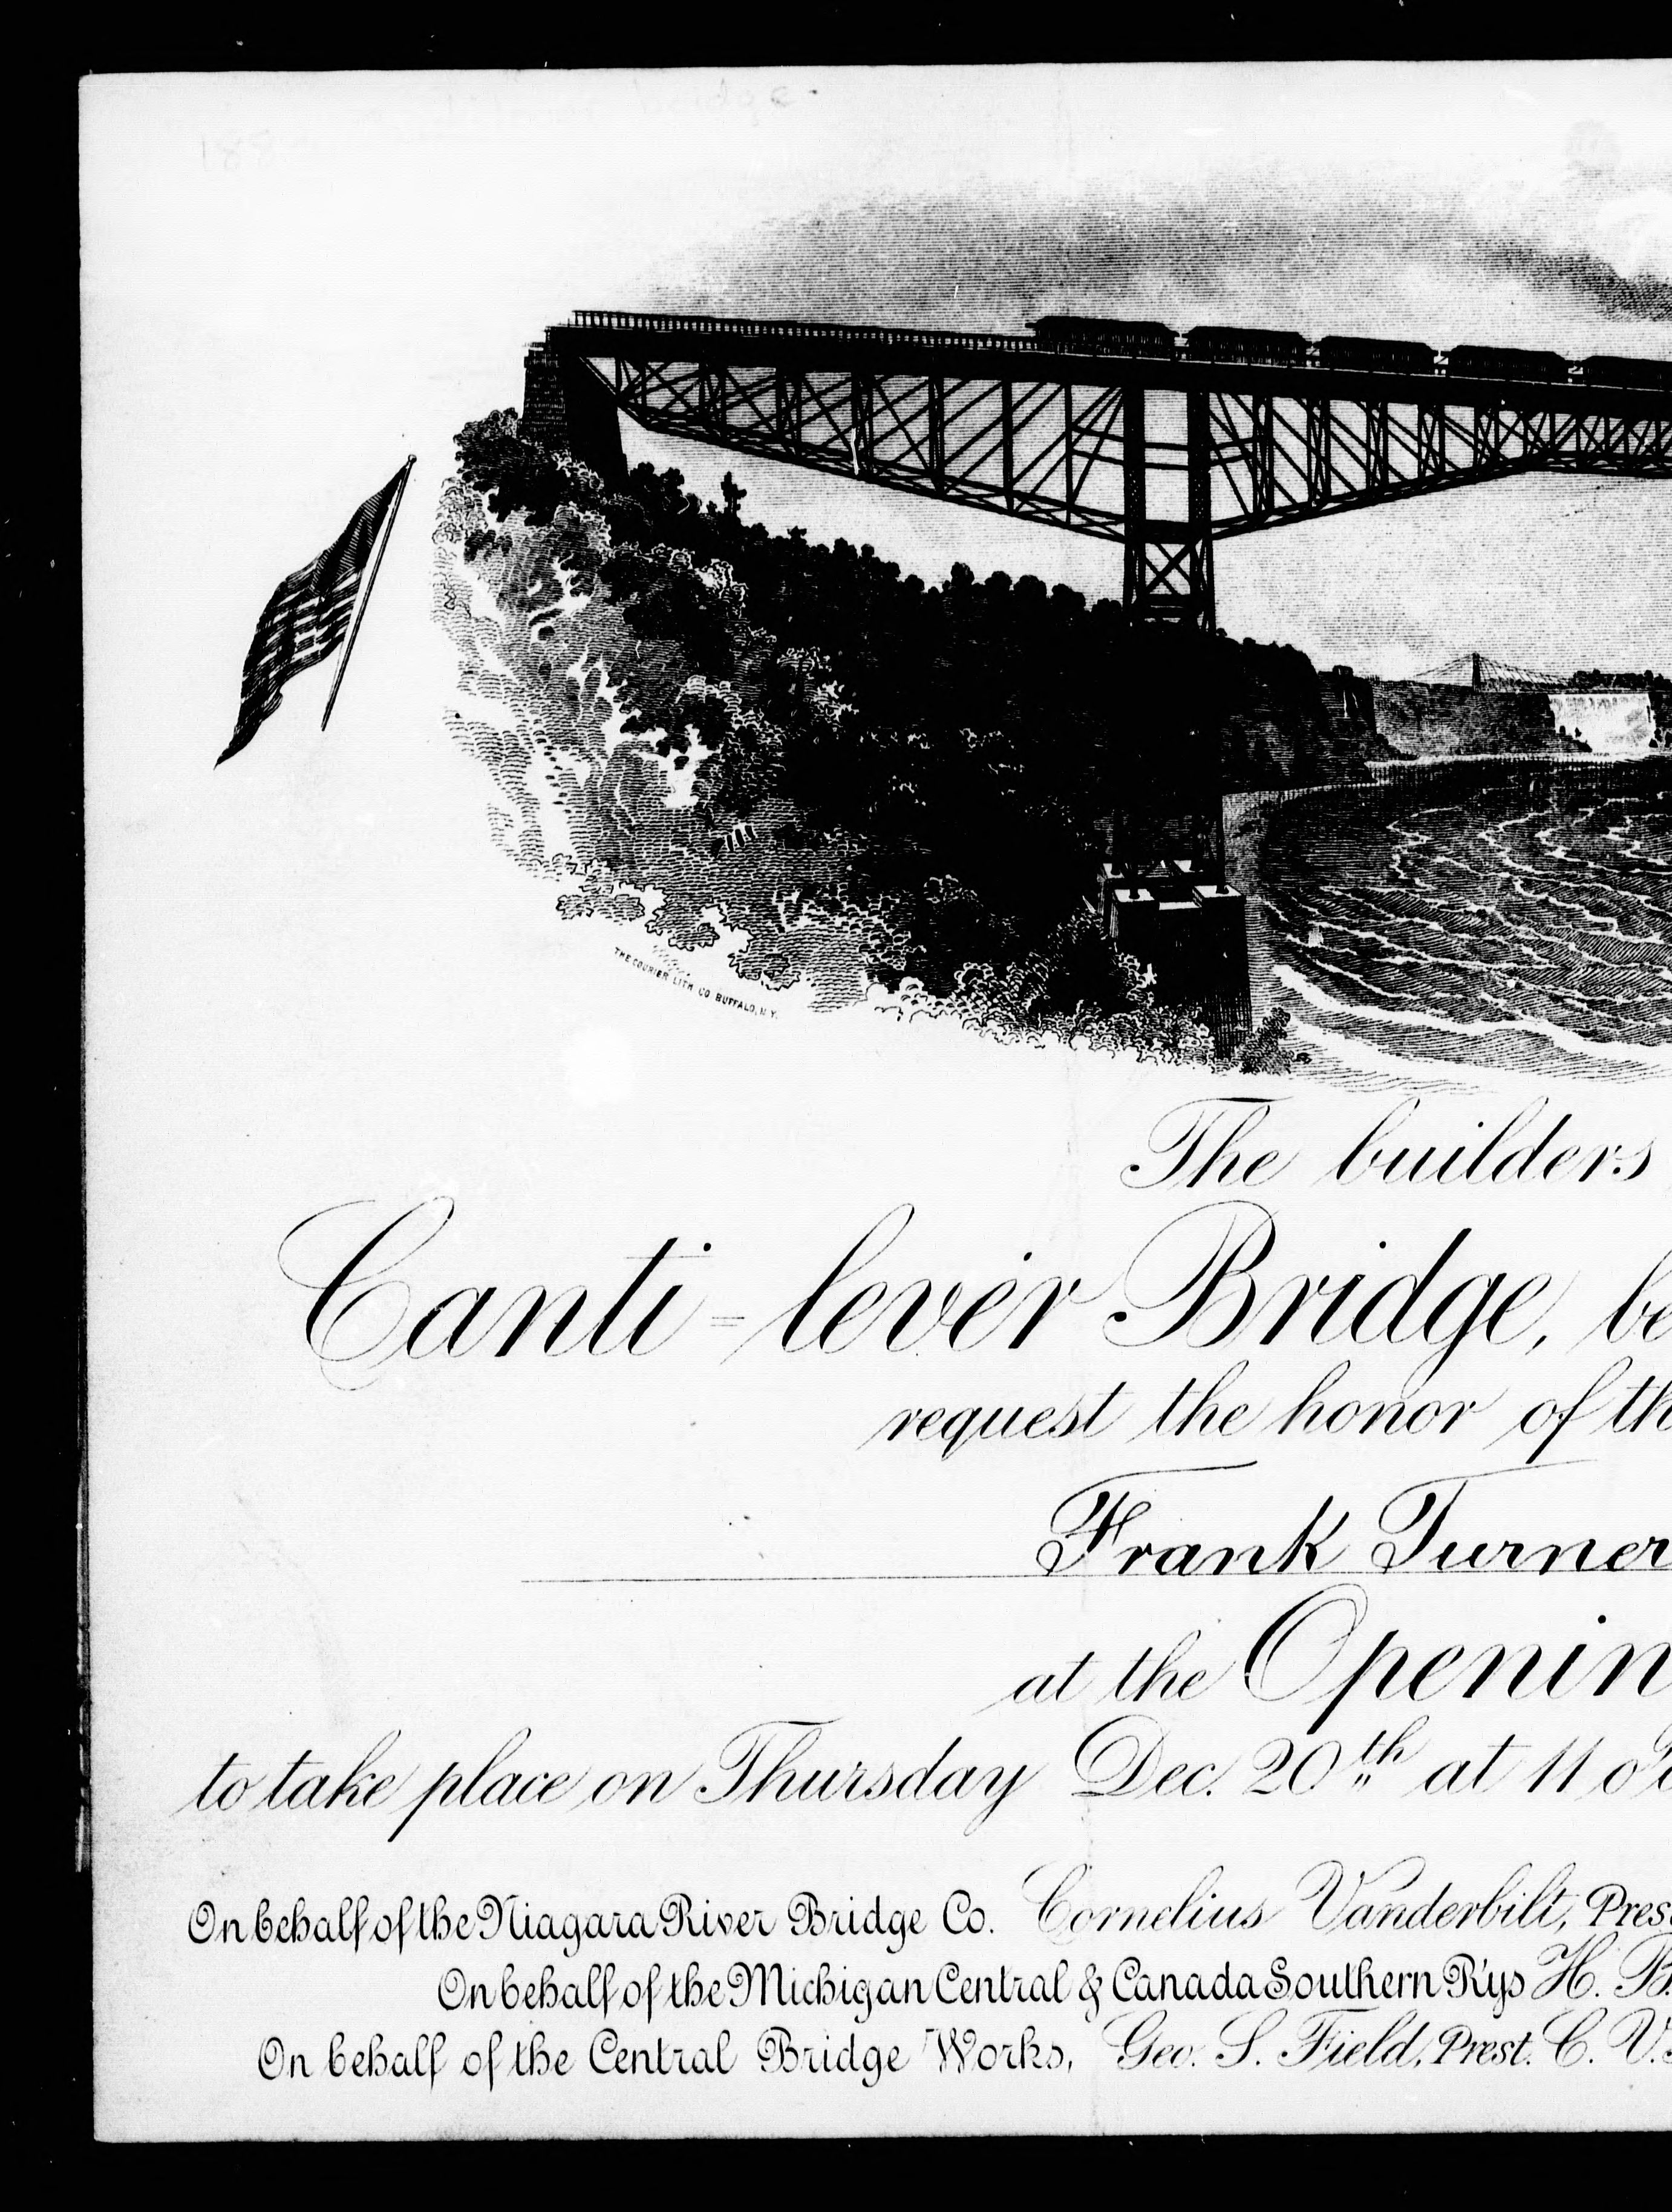 bridge
188
THE COURIER LITH CO BUFFALO, N.Y.
The builders
Canti-lever Bridge, be
request the honor of th
Frank Turner
at the Openin
to take place on Thursday Dec. 20th at 11 o'c
On behalf of the Niagara River Bridge Co. Cornelius Vanderbilt, Pres
On behalf of the Michigan Central & Canada Southern R'ys H. B.
On behalf of the Central Bridge Works, Geo. S. Field, Prest. C. V.